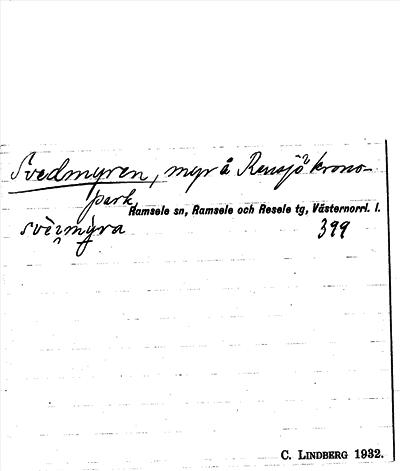 Svedmyren, myr å Rensjö krono-
park
Ramsele sn, Ramsele och Resele tg, Västernorrl. l.
399
C. LINDBERG 1932.